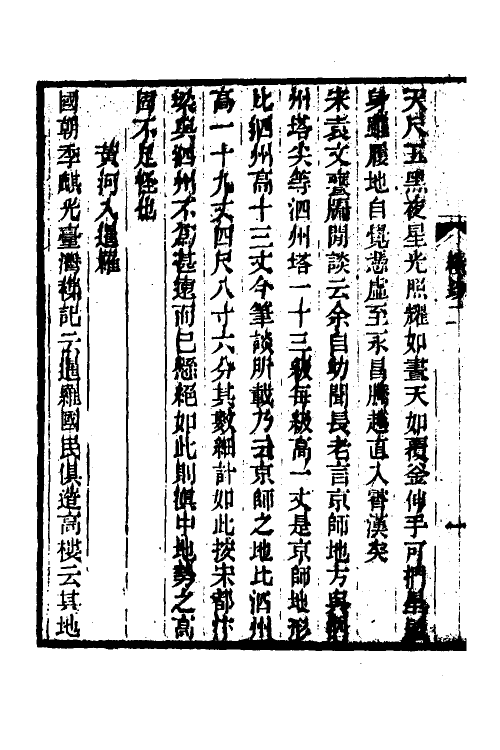 天尺五黑夜星光照耀如晝天如覆釡伸手可捫星
身雖履地自覺懸虛至永昌騰越直入霄漢矣
宋袁文甕牖閒談云余自幼聞長老言京師地方與泗
州塔尖等泗州塔一十三級每級高一丈是京師地形
比泗州高十三丈今筆談所載乃云京師之地比泗州
高一十九丈四尺八寸六分其數細計如此按宋都汴
梁與泗州不爲甚遠而已懸絕如此則滇中地勢之高
固不足怪也
黃河入暹羅
國朝季麒光臺灣稗記云暹羅國民俱造高樓云其地